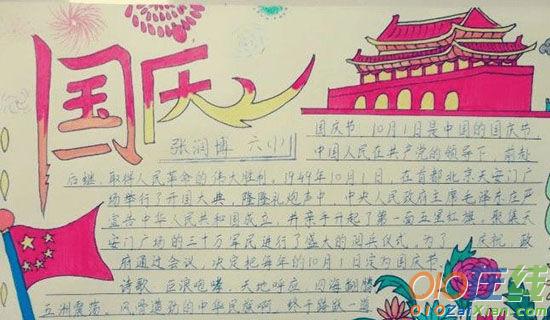 国庆
张润博 六(1)
国庆节 10月1日是中国的国庆节,
中国人民在共产党的领导下,前赴
后继,取得人民革命的伟大胜利,1949年10月1日,在首都北京天安门广
场举行了开国大典,隆隆礼炮声中,中央人民政府主席毛泽东庄严
宣告中华人民共和国成立,并亲手升起了第一面五星红旗,聚集天
安门广场的三十万军民进行了盛大的阅兵仪式,为了 庆祝,政
府通过会议,决定把每年的10月1日定为国庆节.
诗歌:巨浪咆哮,天地呼应,四海翻腾
五洲震荡,风雪遒劲的中华民族啊,终于踏啟一道
在线
ZaiXian.com